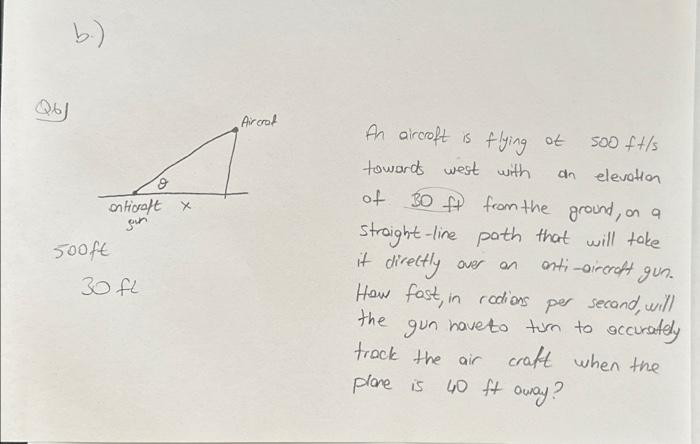 b.)
Q6)
Aircraft
θ
anticraft x
gun
500ft
30 ft
An aircraft is flying at 500 ft/s
towards west with an elevation
of 30 ft from the ground, on a
straight-line path that will take
it directly over an anti-aircraft gun.
How fast, in radians per second, will
the gun have to turn to accurately
track the air craft when the
plane is 40 ft away?